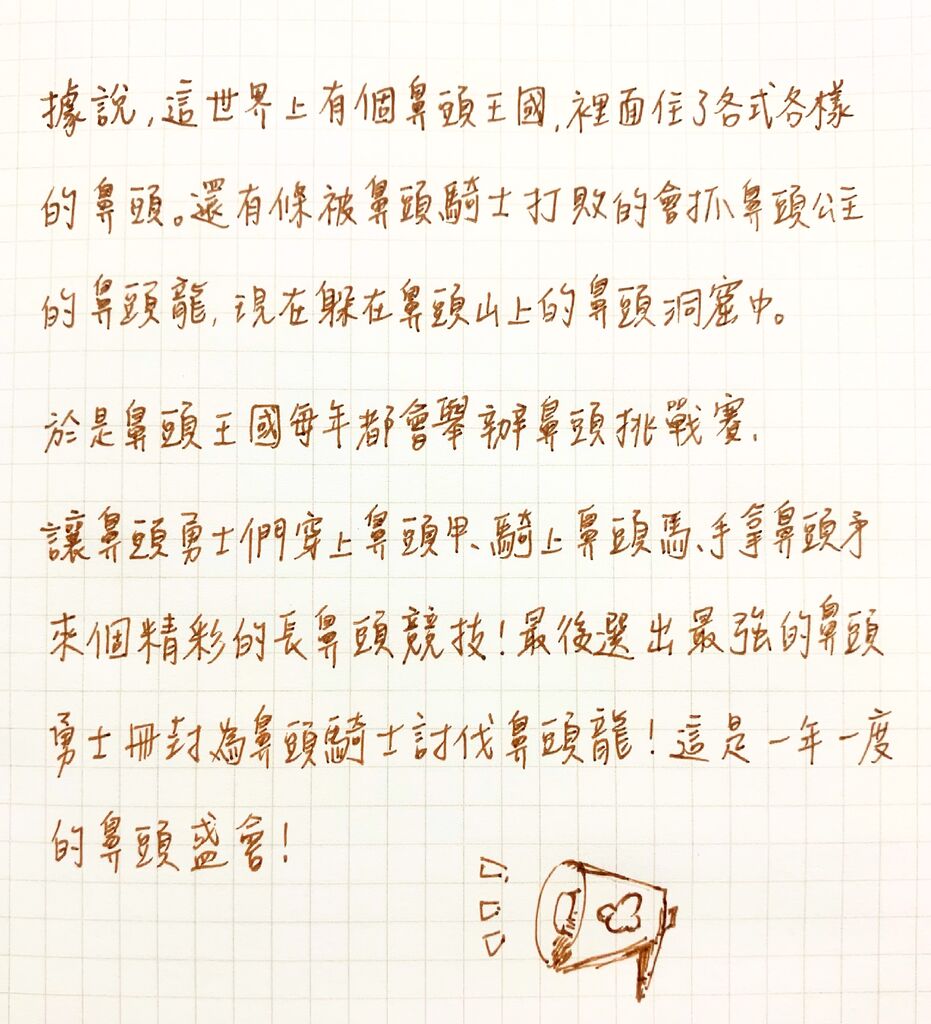 據說，這世界上有個鼻頭王國，裡面住了各式各樣
的鼻頭。還有條被鼻頭騎士打敗的會抓鼻頭公主
的鼻頭龍，現在躲在鼻頭山上的鼻頭洞窟中。
於是鼻頭王國每年都會舉辦鼻頭挑戰賽，
讓鼻頭勇士們穿上鼻頭甲、騎上鼻頭馬、手拿鼻頭矛
來個精彩的長鼻頭競技！最後選出最強的鼻頭
勇士冊封為鼻頭騎士討伐鼻頭龍！這是一年一度
的鼻頭盛會！